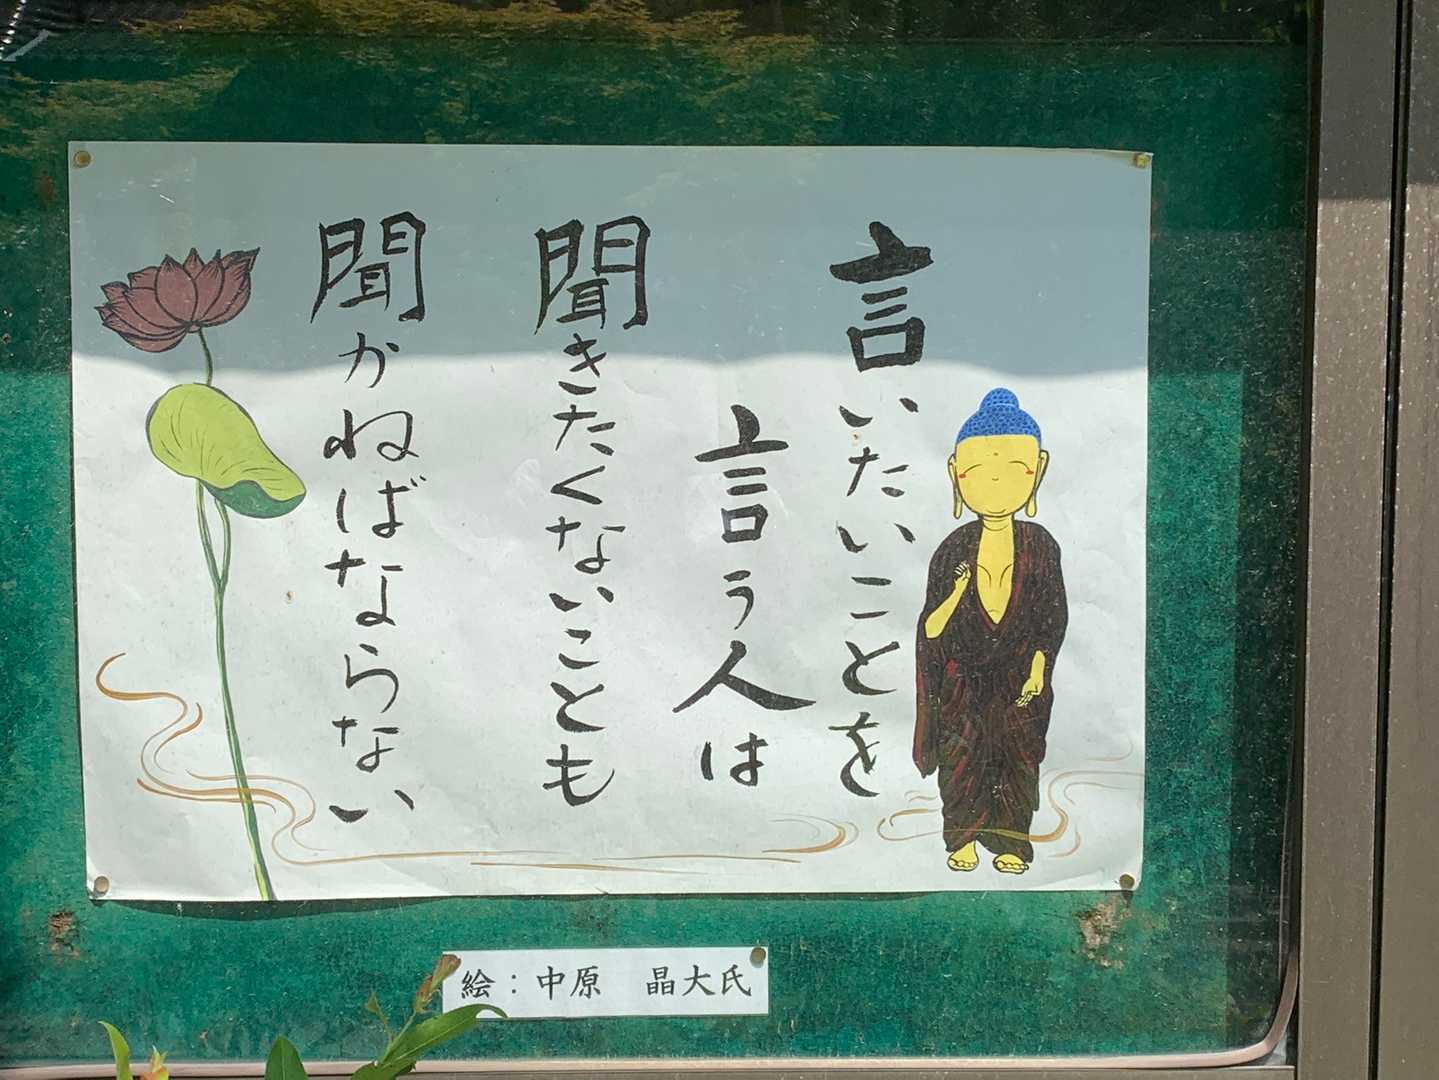 言いたいことを
言う人は
聞きたくないことも
聞かねばならない
絵：中原　晶大氏